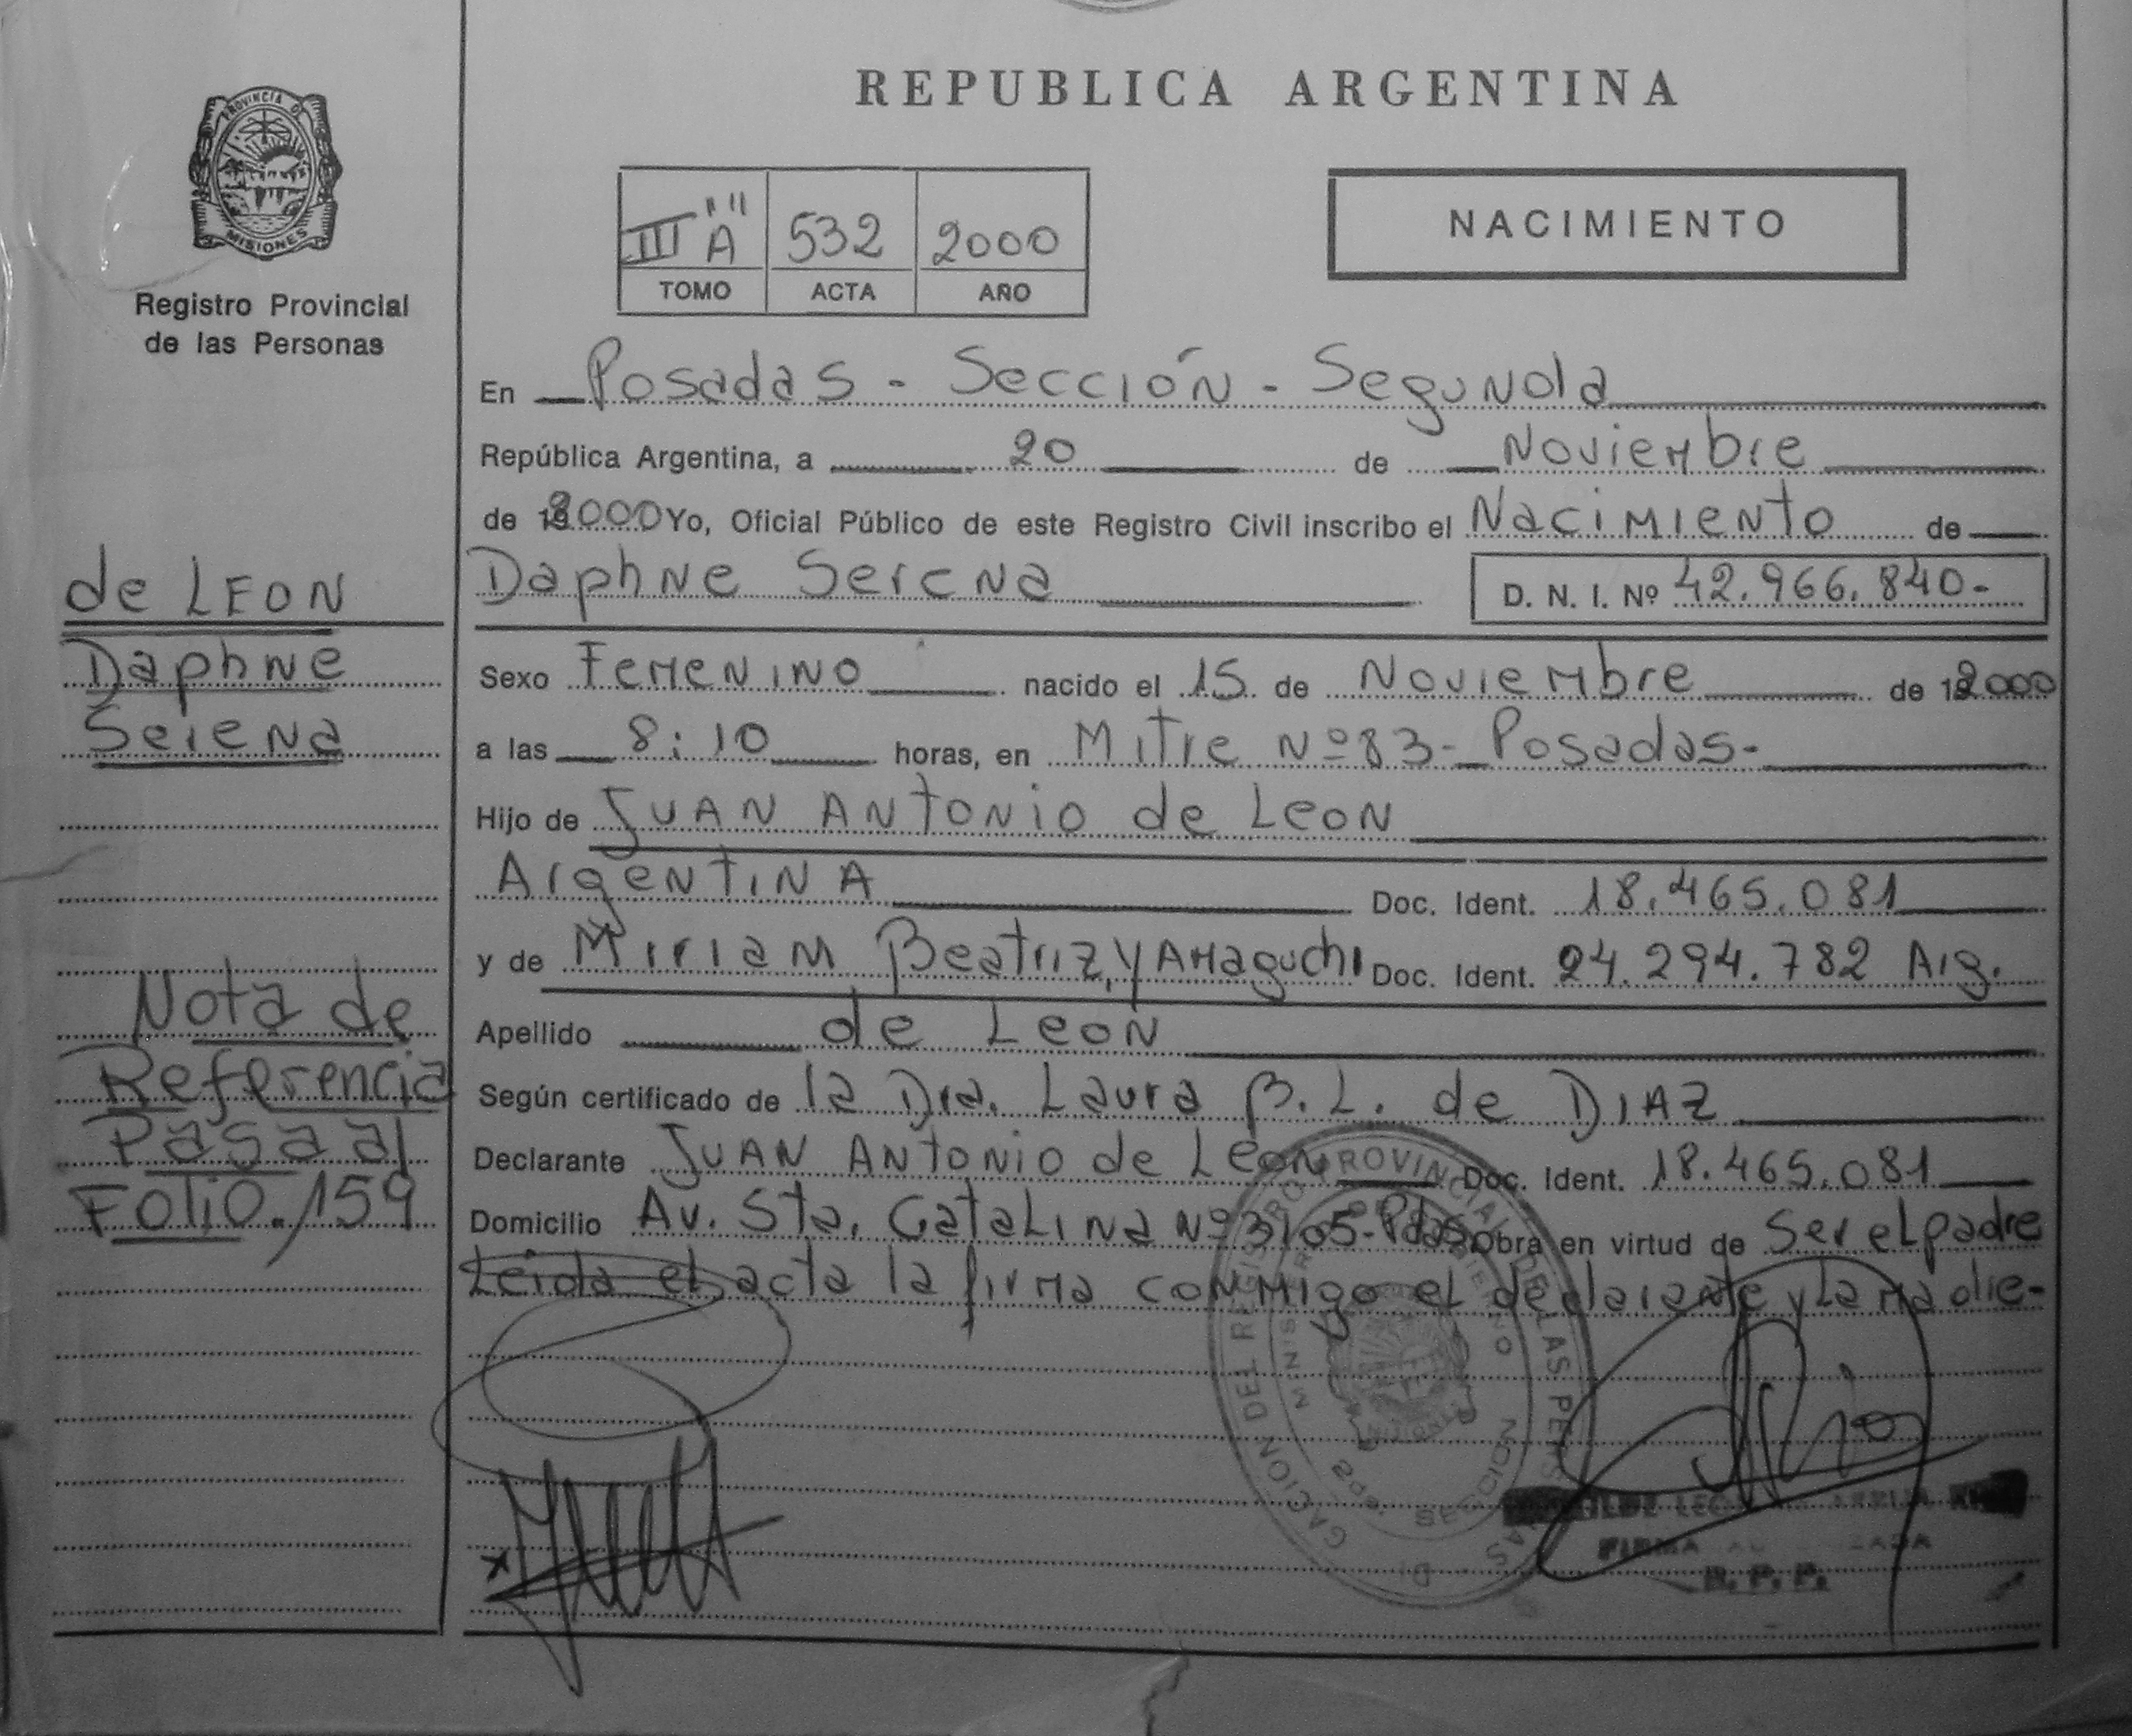 REPUBLICA ARGENTINA
PROVINCIA D
MISIONES
Registro Provincial
de las Personas
III "A" 532 2000
TOMO ACTA AÑO
NACIMIENTO
En Posadas - Sección - Segunda
República Argentina, a 20 de Noviembre
de 2000 Yo, Oficial Público de este Registro Civil inscribo el Nacimiento de
Daphne Serena D. N. I. Nº 42.966.840-
Sexo Femenino nacido el 15 de Noviembre de 2000
a las 8:10 horas, en Mitre Nº 83- Posadas-
Hijo de Juan Antonio de Leon
Argentina Doc. Ident. 18.465.081
y de Miriam Beatriz, Yamaguchi Doc. Ident. 24.294.782 Arg.
Apellido de Leon
Según certificado de la Dra. Laura B. L. de DIAZ
Declarante Juan Antonio de Leon Doc. Ident. 18.465.081
Domicilio Av. Sta. Catalina Nº 3105-Pdas. Obra en virtud de Ser el padre
Leida el acta la firma conmigo el declarante y la madre-
de LEON
Daphne
Serena
Nota de
Referencia
Pasa al
Folio. 159
FIRMA
R. P. P.